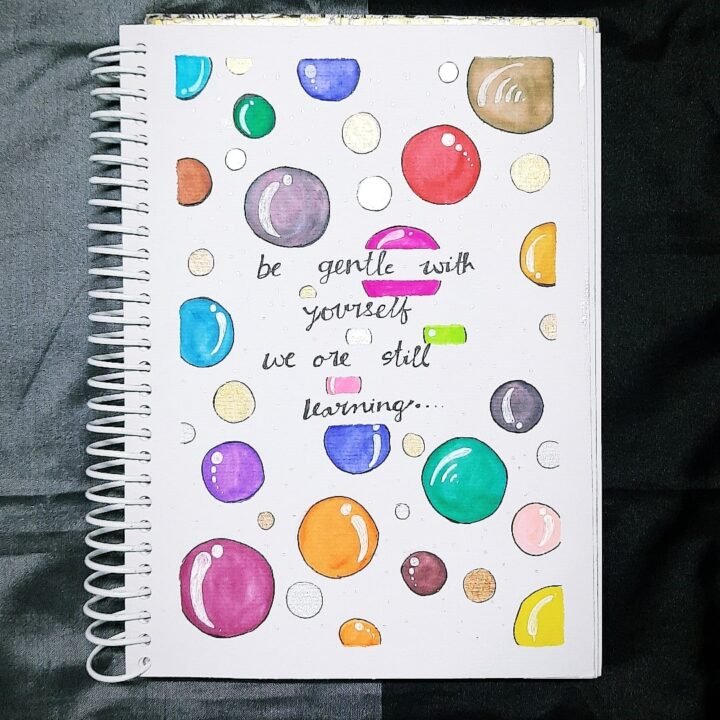 be gentle with
yourself
we are still
learning....